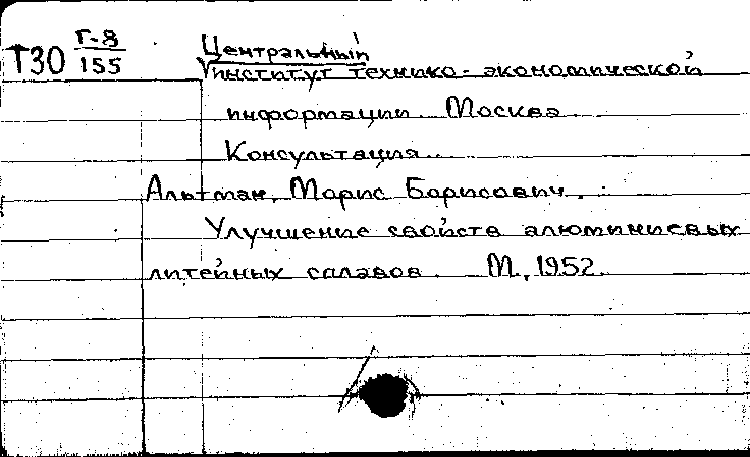 Т30 Г-8/155
Центральный
институт технико-экономической
информации. Москва.
Консультация.
Альтман, Морис Борисович. :
Улучшение свойств алюминиевых
литейных сплавов. М., 1952.